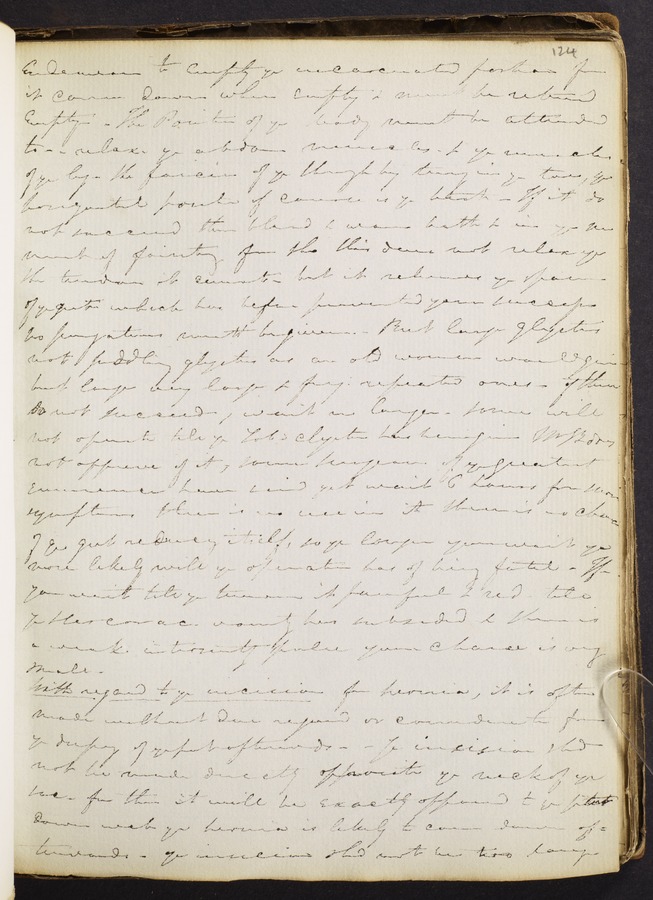 124
Endeavour to empty ye incarcerated portion for
it comes down when empty & must be returned
Empty - The Position of ye body must be attended
to - relax ye abdom muscles & ye muscles
of ye leg - the fascia of ye thigh by turning in ye toes, ye
horizontal position of course is ye best - If it do
not succeed then bleed & warm bath & in ye mo
ment of fainting for tho this does not relax ye
the tendon it cannot - but it relieves ye spasm
of ye gut which has before prevented your success
no purgatives must be given - But large glysters
not piddling glysters as an old woman would give
but large very large & freq: repeated ones - If these
do not succeed, wait no longer - some will
not operate till ye Tob: clyster has been given Mr
not approve of it, some surgeons of ye greatest
eminence have said yet wait 6 hours for
symptoms there is no use in it there is no chance
of ye gut relieving itself, so ye longer you wait ye
more likely will ye operation be of being fatal - If
you wait till ye tumour is painful & red - till
ye vomitg has subsided & there is
a weak intermittg pulse your chance is very
small -
With regard to ye incision for hernia, it is often
made without due regard or consideration for
ye of ye pt afterwards - Ye incision shd
not be made directly opposite ye neck of ye
sac - for then it will be exactly opposed to ye
down wch ye hernia is likely to come down af=
terwards - ye incision shd not be too large